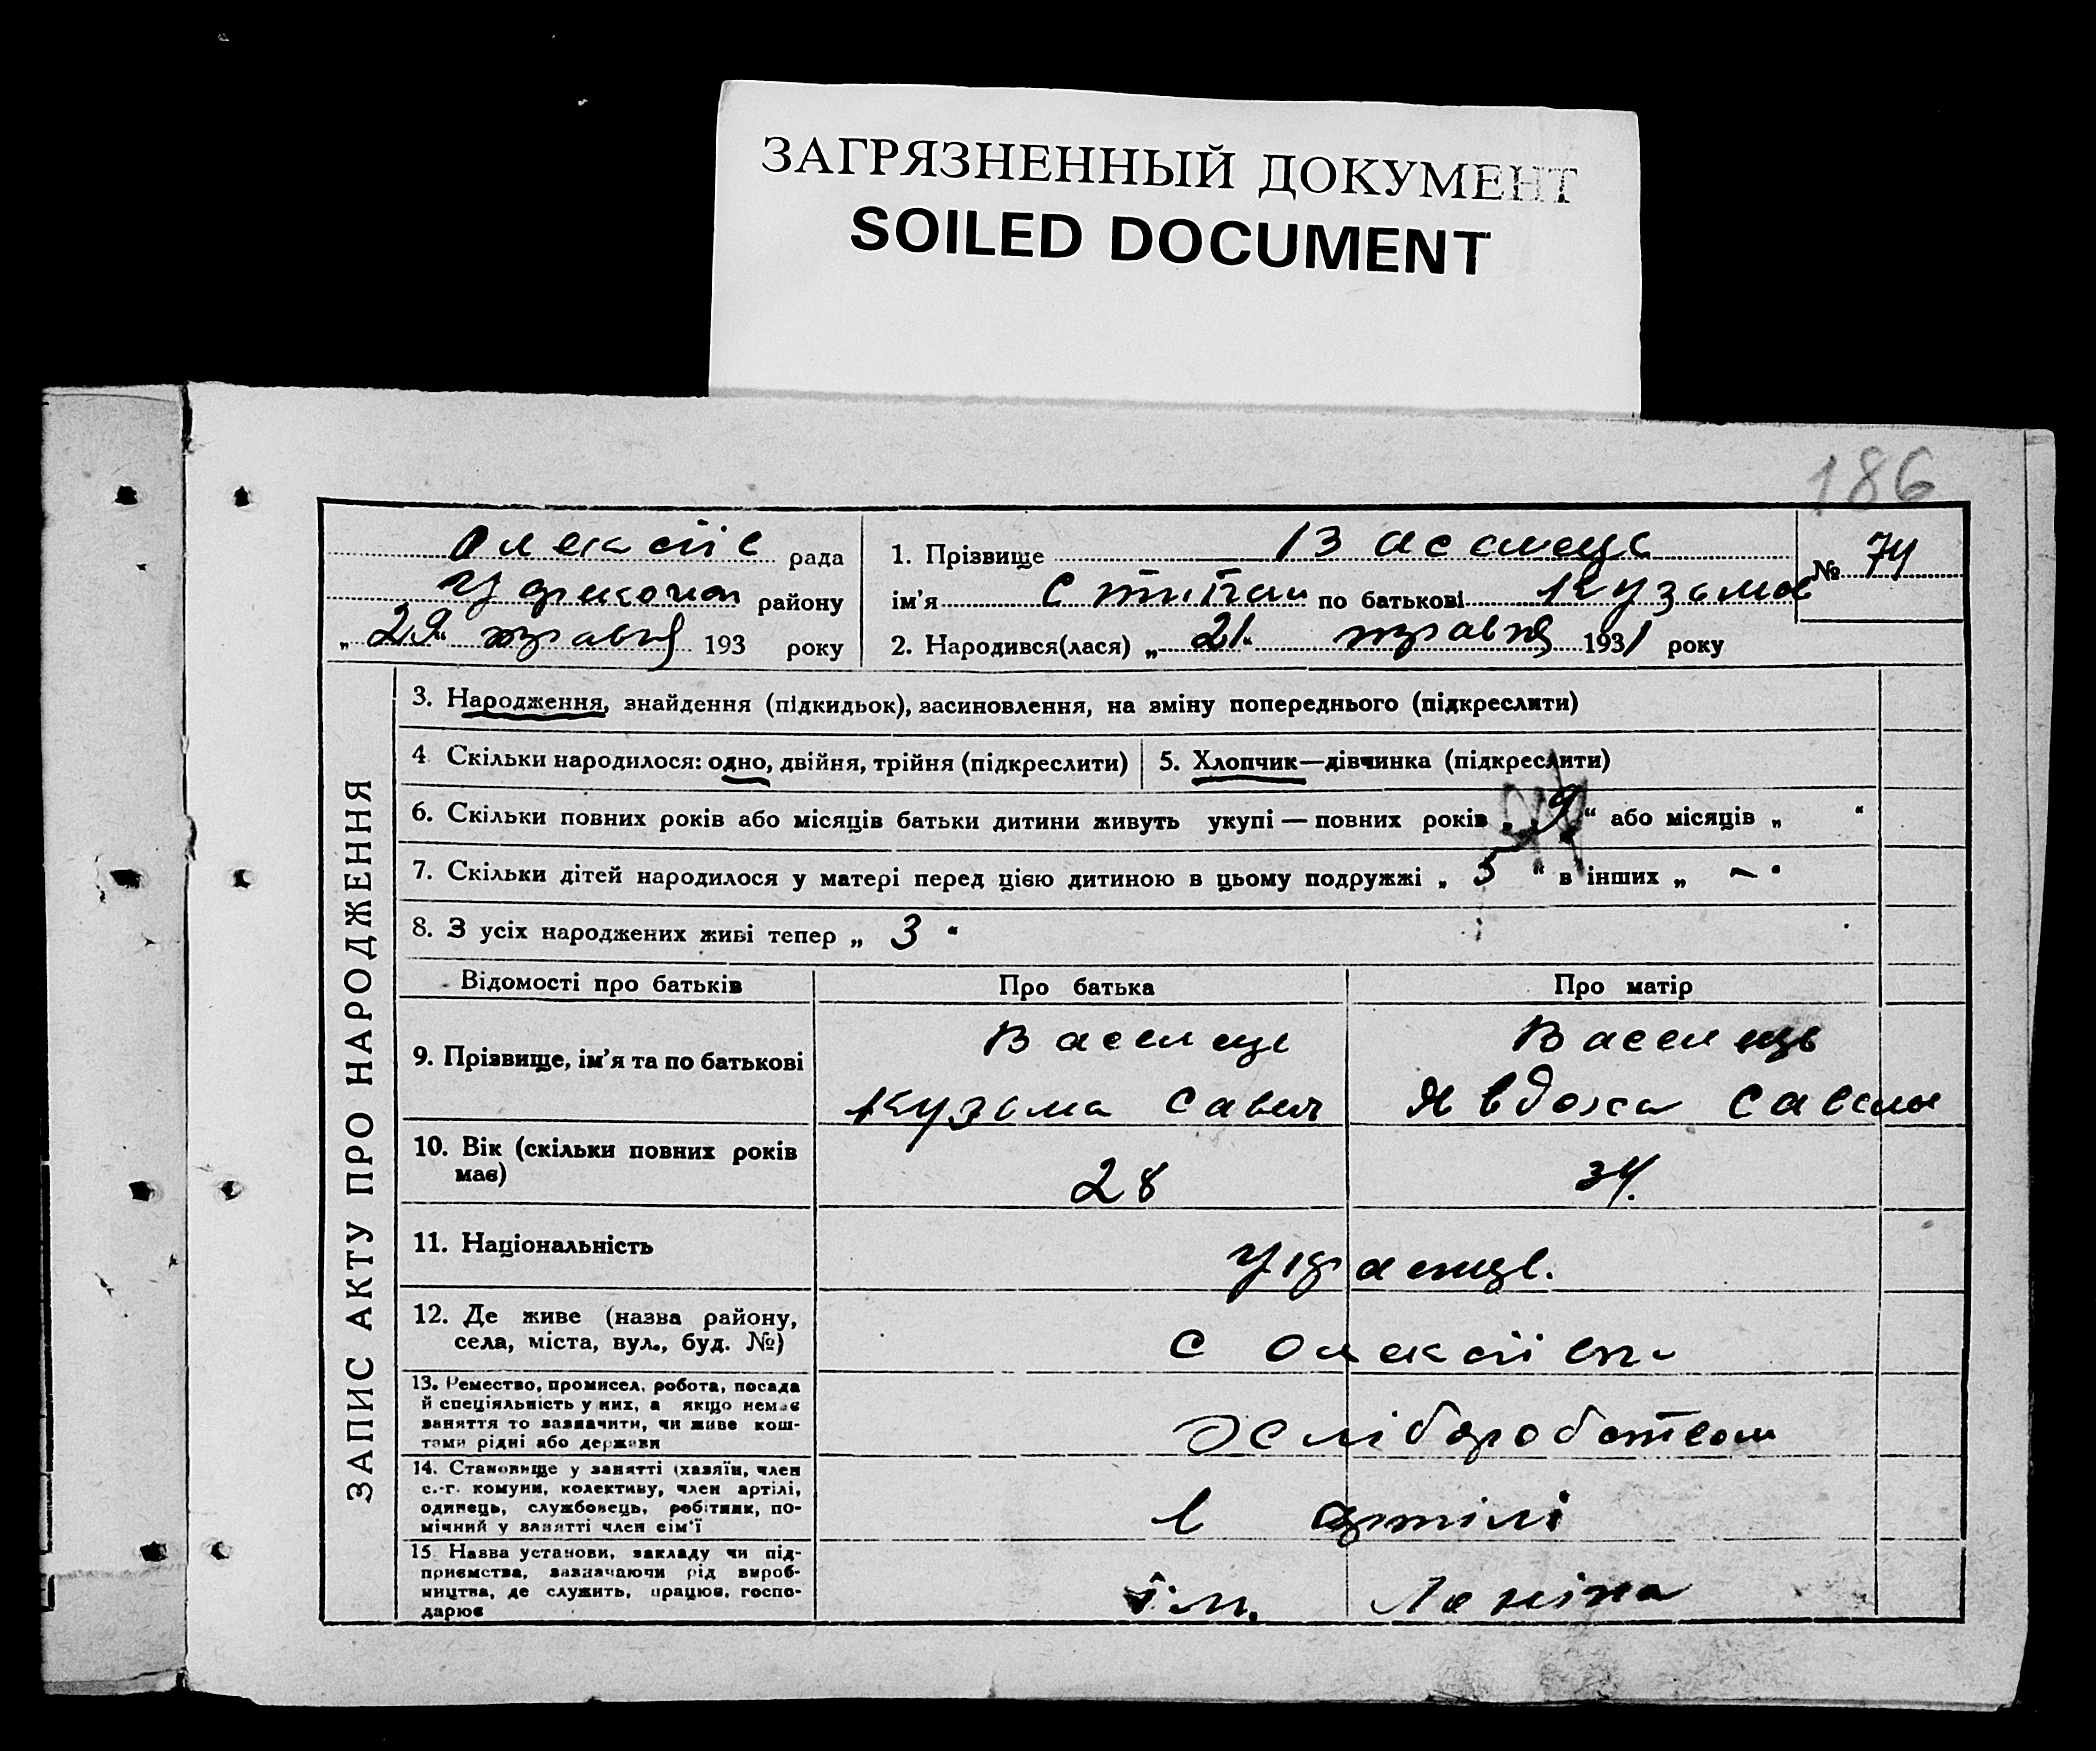 ЗАГРЯЗНЕННЫЙ ДОКУМЕНТ
SOILED DOCUMENT
186
Олексіїв рада
району
„29“ травня 193 року
1. Прізвище Васелець
ім’я Степан по батькові Кузьмов
№ 74
2. Народився(лася) „21“ травня 1931 року
ЗАПИС АКТУ ПРО НАРОДЖЕННЯ
3. Народження, знайдення (підкидьок), засиновлення, на зміну попереднього (підкреслити)
4 Скільки народилося: одно, двійня, трійня (підкреслити)
5. Хлопчик—дівчинка (підкреслити)
6. Скільки повних років або місяців батьки дитини живуть укупі — повних років „9“ або місяців „ “
7. Скільки дітей народилося у матері перед цією дитиною в цьому подружжі „5“ в інших „ — “
8. З усіх народжених живі тепер „3“
Відомості про батьків
Про батька
Про матір
9. Прізвище, ім’я та по батькові
Васелець
Кузьма Савел
Васелець
Явдоха Савели
10. Вік (скільки повних років
має)
28
34.
11. Національність
Українці.
12. Де живе (назва району,
села, міста, вул., буд. №)
с Олексіївка
13. Ремество, промисел, робота, посада
й спеціяльність у них, а якщо немає
заняття то зазначити, чи живе кош-
тами рідні або держави
Хліборобством
14. Становище у занятті (хазяїн, член
с.-г. комуни, колективу, член артілі,
одинець, службовець, робітник, по-
мічний у занятті член сім’ї
в артілі
15. Назва установи, закладу чи під-
приємства, зазначаючи рід вироб-
ництва, де служить, працює, госпо-
дарює
ім. Леніна